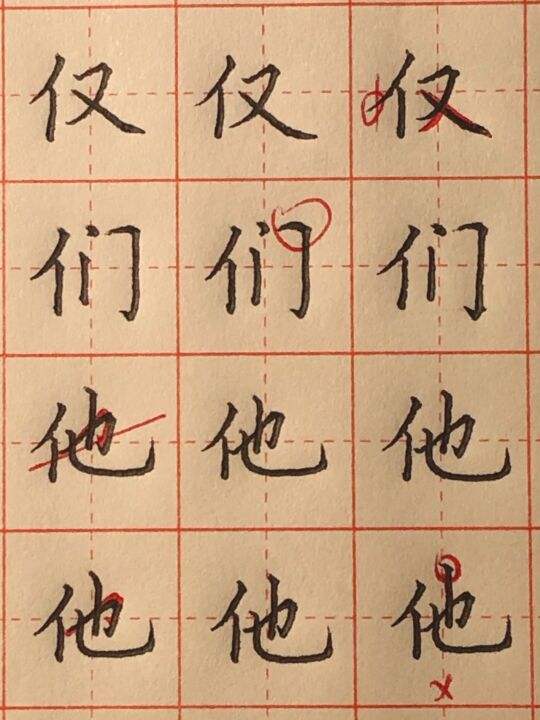 仅仅仅
们们们
他他他
他他他